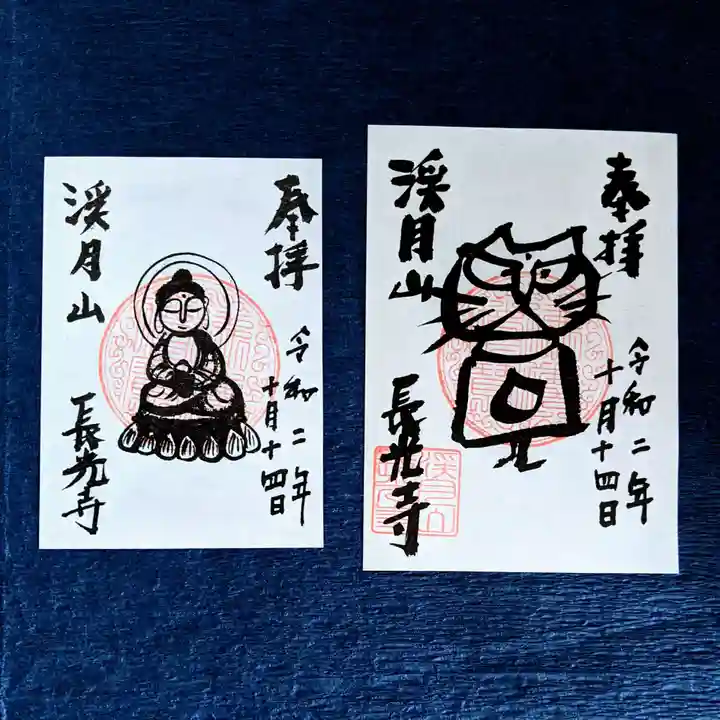 奉拝
令和二年
十月十四日
渓月山
長光寺
奉拝
令和二年
十月十四日
渓月山
長光寺